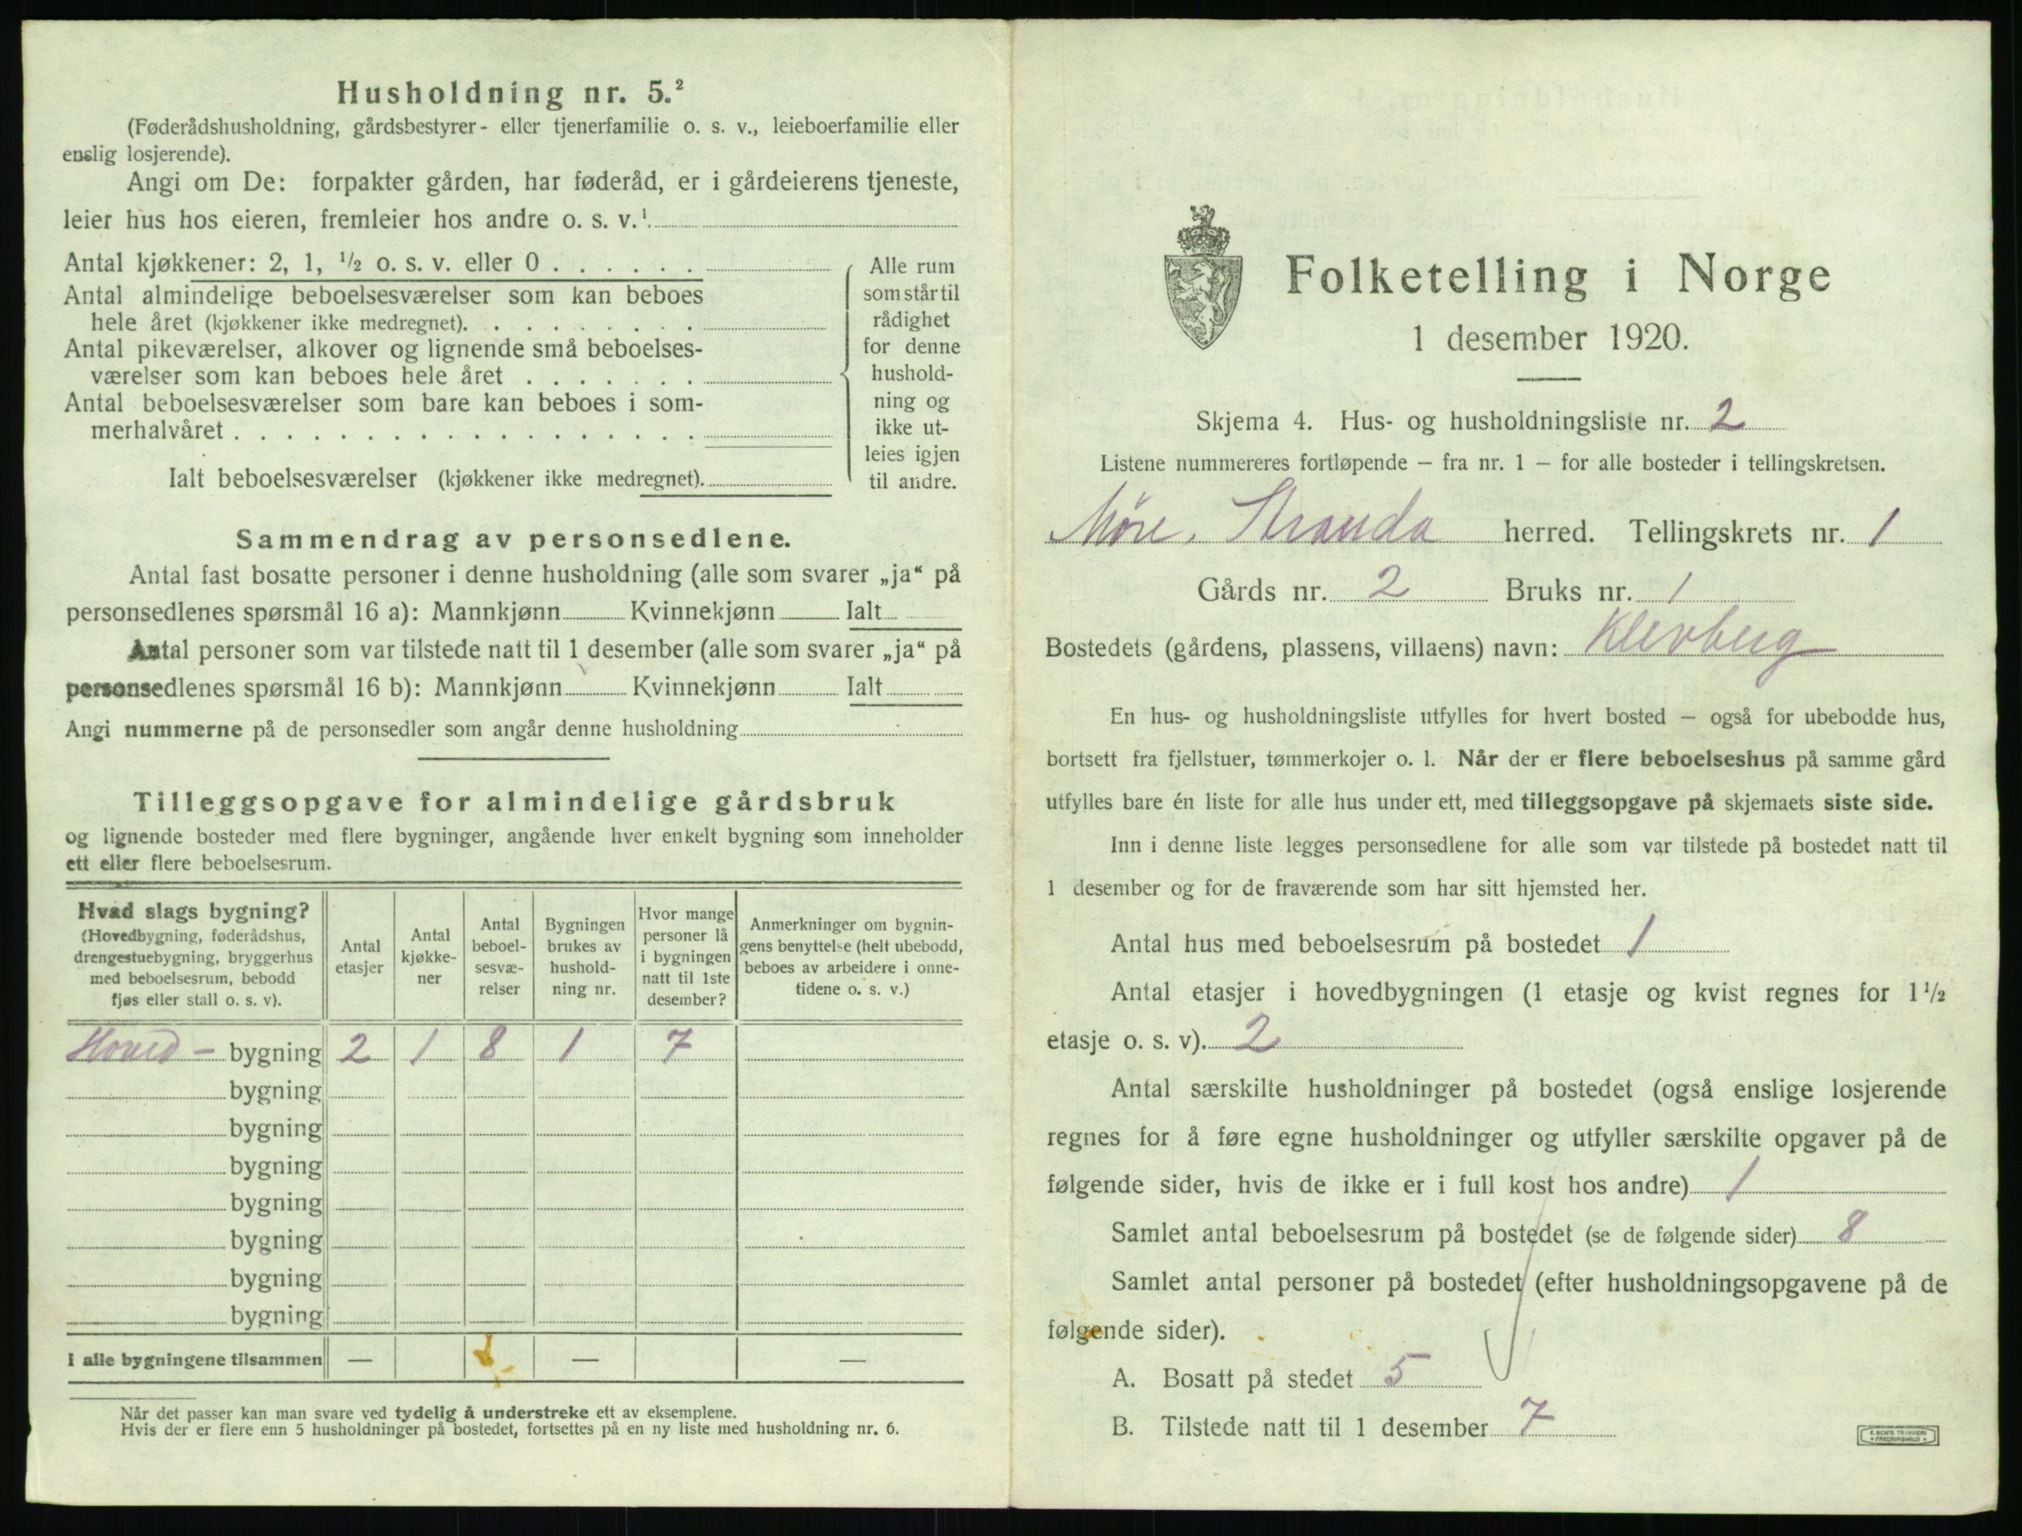 Husholdning nr. 5.²
(Føderådshusholdning, gårdsbestyrer- eller tjenerfamilie o. s. v., leieboerfamilie eller
enslig losjerende).
Angi om De: forpakter gården, har føderåd, er i gårdeierens tjeneste,
leier hus hos eieren, fremleier hos andre o. s. v.¹
Antal kjøkkener: 2, 1, ½ o. s. v. eller 0 . . . . . .
Antal almindelige beboelsesværelser som kan beboes
hele året (kjøkkener ikke medregnet). . . . . . . . .
Antal pikeværelser, alkover og lignende små beboelses-
værelser som kan beboes hele året . . . . . . .
Antal beboelsesværelser som bare kan beboes i som-
merhalvåret . . . . . . . . . . . . . . . . . .
Ialt beboelsesværelser (kjøkkener ikke medregnet).
Alle rum
som står til
rådighet
for denne
hushold-
ning og
ikke ut-
leies igjen
til andre.
Sammendrag av personsedlene.
Antal fast bosatte personer i denne husholdning (alle som svarer „ja“ på
personsedlenes spørsmål 16 a): Mannkjønn Kvinnekjønn Ialt
Antal personer som var tilstede natt til 1 desember (alle som svarer „ja“ på
personsedlenes spørsmål 16 b): Mannkjønn Kvinnekjønn Ialt
Angi nummerne på de personsedler som angår denne husholdning
Tilleggsopgave for almindelige gårdsbruk
og lignende bosteder med flere bygninger, angående hver enkelt bygning som inneholder
ett eller flere beboelsesrum.
Hvad slags bygning?
(Hovedbygning, føderådshus,
drengestuebygning, bryggerhus
med beboelsesrum, bebodd
fjøs eller stall o. s. v).
Antal
etasjer
Antal
kjøkke-
ner
Antal
beboel-
sesvæ-
relser
Bygningen
brukes av
hushold-
ning nr.
Hvor mange
personer lå
i bygningen
natt til 1ste
desember?
Anmerkninger om bygnin-
gens benyttelse (helt ubebodd,
beboes av arbeidere i onne-
tidene o. s. v.)
Hoved- bygning 2 1 8 1 7
bygning
bygning
bygning
bygning
bygning
bygning
bygning
I alle bygningene tilsammen — — —
Når det passer kan man svare ved tydelig å understreke ett av eksemplene.
Hvis der er flere enn 5 husholdninger på bostedet, fortsettes på en ny liste med husholdning nr. 6.
Folketelling i Norge
1 desember 1920.
Skjema 4. Hus- og husholdningsliste nr. 2
Listene nummereres fortløpende – fra nr. 1 – for alle bosteder i tellingskretsen.
Møre, Stranda herred. Tellingskrets nr. 1
Gårds nr. 2 Bruks nr. 1
Bostedets (gårdens, plassens, villaens) navn: Klevberg
En hus- og husholdningsliste utfylles for hvert bosted – også for ubebodde hus,
bortsett fra fjellstuer, tømmerkojer o. l. Når der er flere beboelseshus på samme gård
utfylles bare én liste for alle hus under ett, med tilleggsopgave på skjemaets siste side.
Inn i denne liste legges personsedlene for alle som var tilstede på bostedet natt til
1 desember og for de fraværende som har sitt hjemsted her.
Antal hus med beboelsesrum på bostedet 1
Antal etasjer i hovedbygningen (1 etasje og kvist regnes for 1½
etasje o. s. v). 2
Antal særskilte husholdninger på bostedet (også enslige losjerende
regnes for å føre egne husholdninger og utfyller særskilte opgaver på de
følgende sider, hvis de ikke er i full kost hos andre) 1
Samlet antal beboelsesrum på bostedet (se de følgende sider) 8
Samlet antal personer på bostedet (efter husholdningsopgavene på de
følgende sider).
A. Bosatt på stedet 5
B. Tilstede natt til 1 desember 7